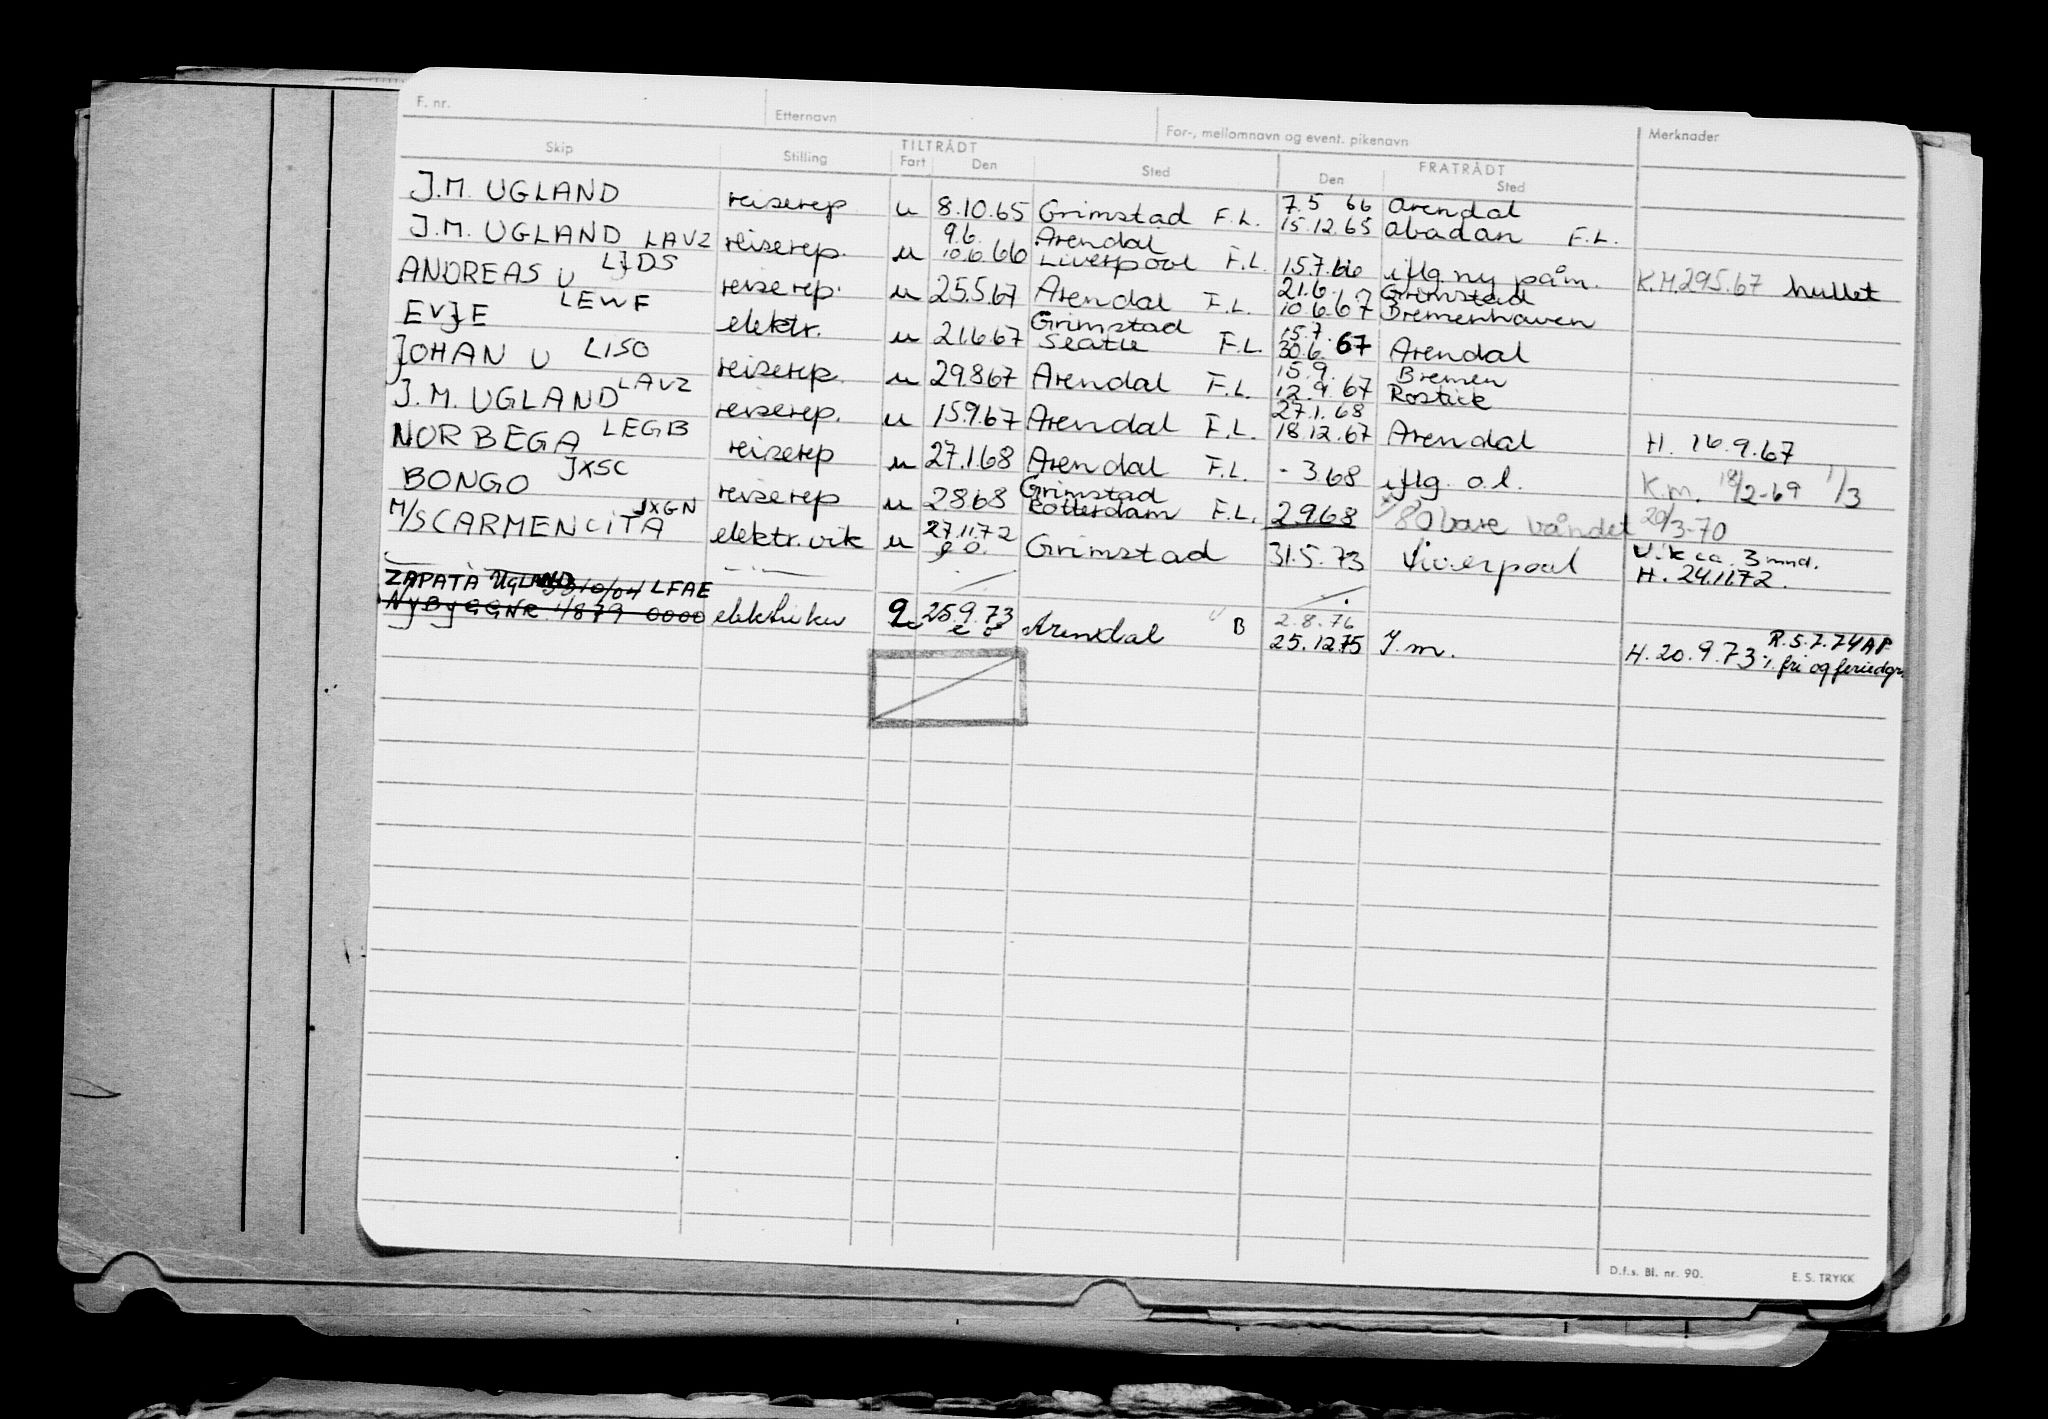 F. nr. Etternavn For-, mellomnavn og event. pikenavn Merknader
Skip Stilling TILTRÅDT Fart Den Sted FRATRÅDT Den Sted
J.M. UGLAND reiserep u 8.10.65 Grimstad F.L. 7.5 66 Arendal
15.12.65 abadan F.L.
J.M. UGLAND LAVZ reiserep. u 9.6. Arendal
10.6.66 Liverpool F.L. 15.7.66 iflg. ny påm. K.M.29.5.67 hullet
ANDREAS U LJDS reiserep. u 25.5.67 Arendal F.L. 21.6. Grimstad
10.6.67 Bremenhaven
EVJE LEWF elektr. u 21.6.67 Grimstad
Seatle F.L. 15.7.
30.6. 67 Arendal
JOHAN U LISO reiserep. u 29.8.67 Arendal F.L. 15.9. Bremen
12.9.67 Rostick
J.M. UGLAND LAVZ reiserep. u 15.9.67 Arendal F.L. 27.1.68
18.12.67 Arendal H. 16.9.67
NORBEGA LEGB reiserep u 27.1.68 Arendal F.L. - 3.68 iflg. o.l. K.m. 18/2-69 1/3
BONGO JXSC reiserep u 2.8.68 Grimstad
Rotterdam F.L. 2.9.68 80 bare båndet 20/3-70
M/S CARMENCITA JXGN elektr. vik u 27.11.72
e o. Grimstad 31.5.73 Liverpool Vik ca. 3 mnd.
H. 24.11.72.
ZAPATA UGLAND LFAE
NYBYGGNR. 1/879 0000 elektriker u 25.9.73
e o Arendal B 2.8.76
25.12.75 I.m. R.5.7.74 AP
H. 20.9.73 %. fri og feriedgr.
D.f.s. Bl. nr. 90. E. S. TRYKK